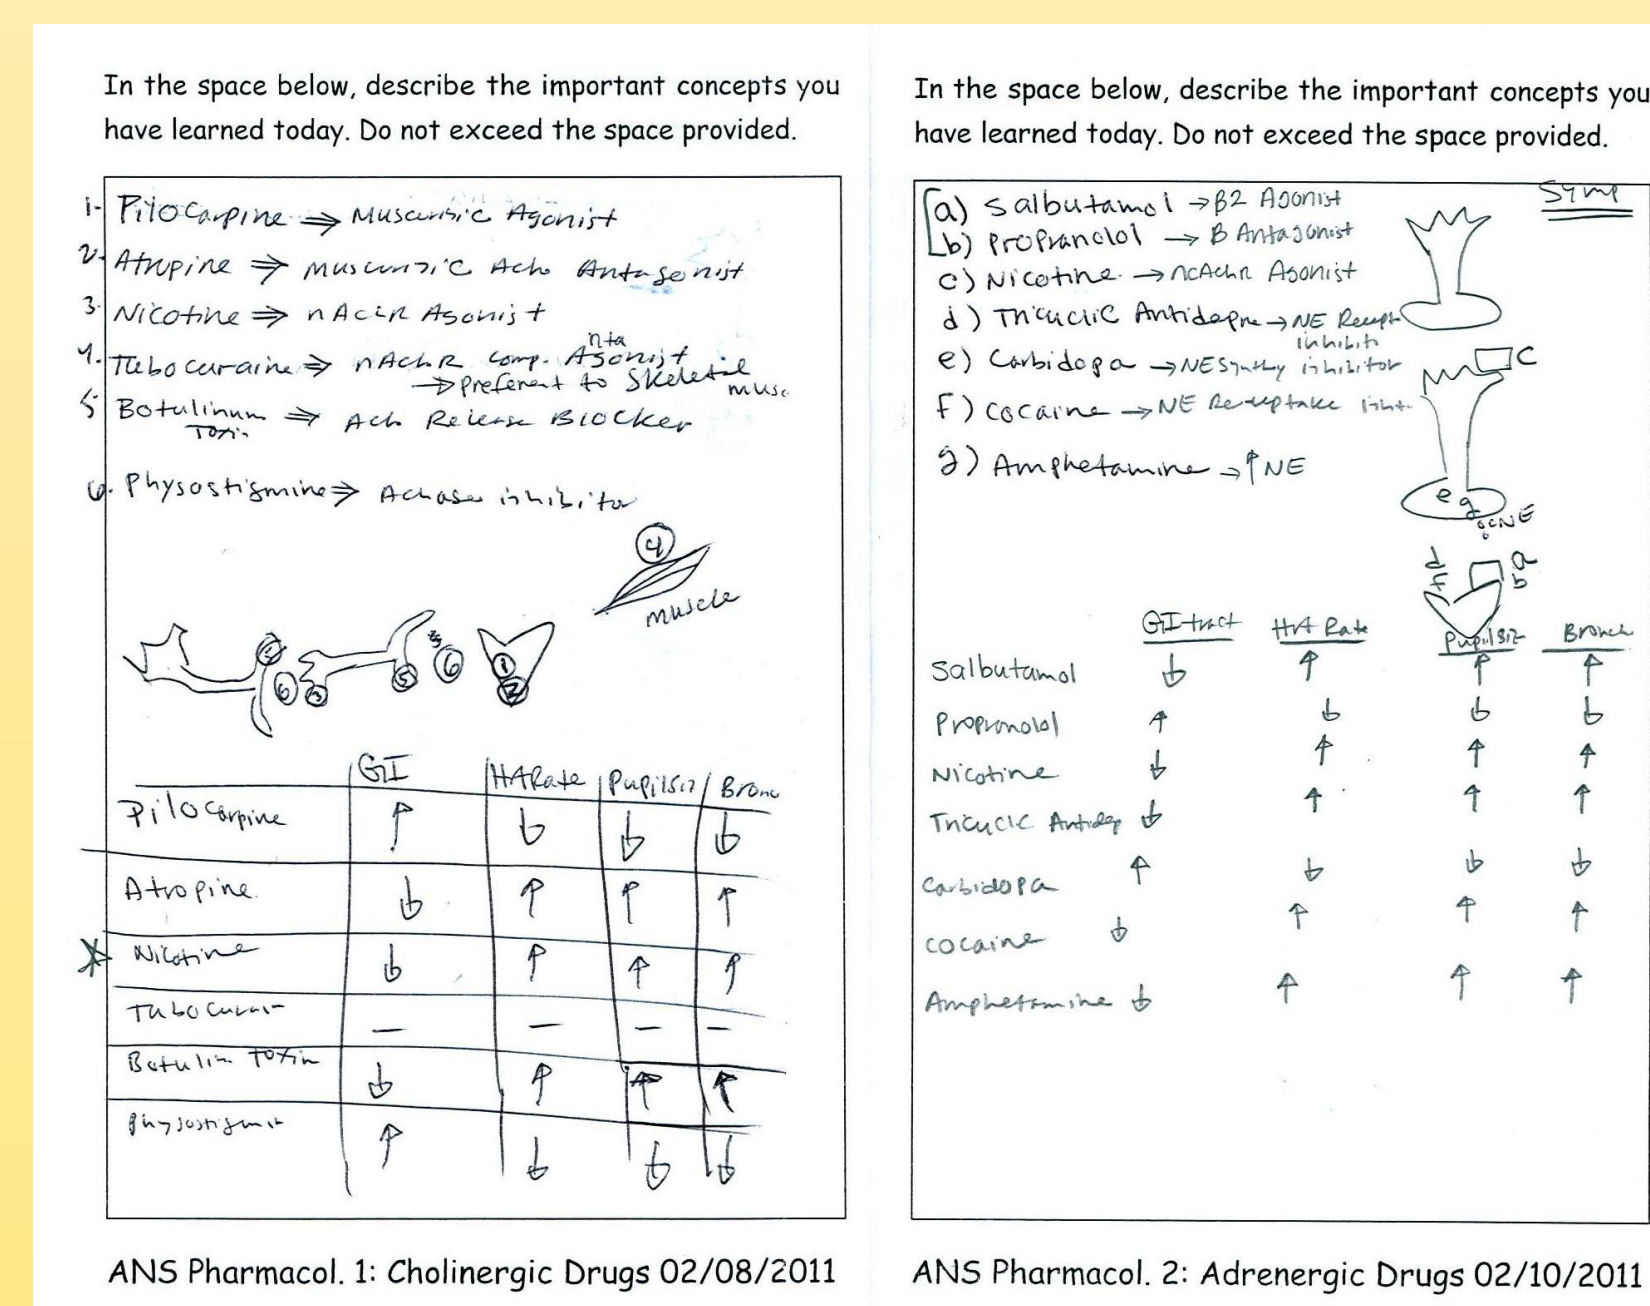 In the space below, describe the important concepts you
have learned today. Do not exceed the space provided.
1- Pilocarpine ⇒ Muscarinic Agonist
2. Atropine ⇒ Muscurinic Ach Antagonist
3. Nicotine ⇒ nAchR Agonist
nta
4. Tubocuraine ⇒ nAchR comp. Agonist
→ preferent to Skeletal
musc
5 Botulinum ⇒ Ach Release Blocker
Toxin
6. Physostigmine ⇒ Achase inhibitor
4
muscle
6 3 5 6 1
2
GI HRt Rate Pupil siz Bronc
Pilocarpine ↑ ↓ ↓ ↓
Atropine ↓ ↑ ↑ ↑
Nicotine ↓ ↑ ↑ ↑
Tubocurain — — — —
Botulin toxin ↓ ↑ ↑ ↑
Physostigmin ↑ ↓ ↓ ↓
ANS Pharmacol. 1: Cholinergic Drugs 02/08/2011
In the space below, describe the important concepts you
have learned today. Do not exceed the space provided.
Symp
a) Salbutamol → β2 Agonist
b) Propranolol → B Antagonist
c) Nicotine → ncAchR Agonist
d) Tricyclic Antidepre → NE Recept
inhibiti
e) Carbidopa → NE Synthy inhibitor
C
f) cocaine → NE Re-uptake inh.
g) Amphetamine → ↑NE
e g
NE
d a
f b
GI tract Hrt Rate Pupil siz Bronch
Salbutamol ↓ ↑ ↑ ↑
Propranolol ↑ ↓ ↓ ↓
Nicotine ↓ ↑ ↑ ↑
Tricyclc Antidep ↓ ↑ ↑ ↑
Carbidopa ↑ ↓ ↓ ↓
cocaine ↓ ↑ ↑ ↑
Amphetamine ↓ ↑ ↑ ↑
ANS Pharmacol. 2: Adrenergic Drugs 02/10/2011